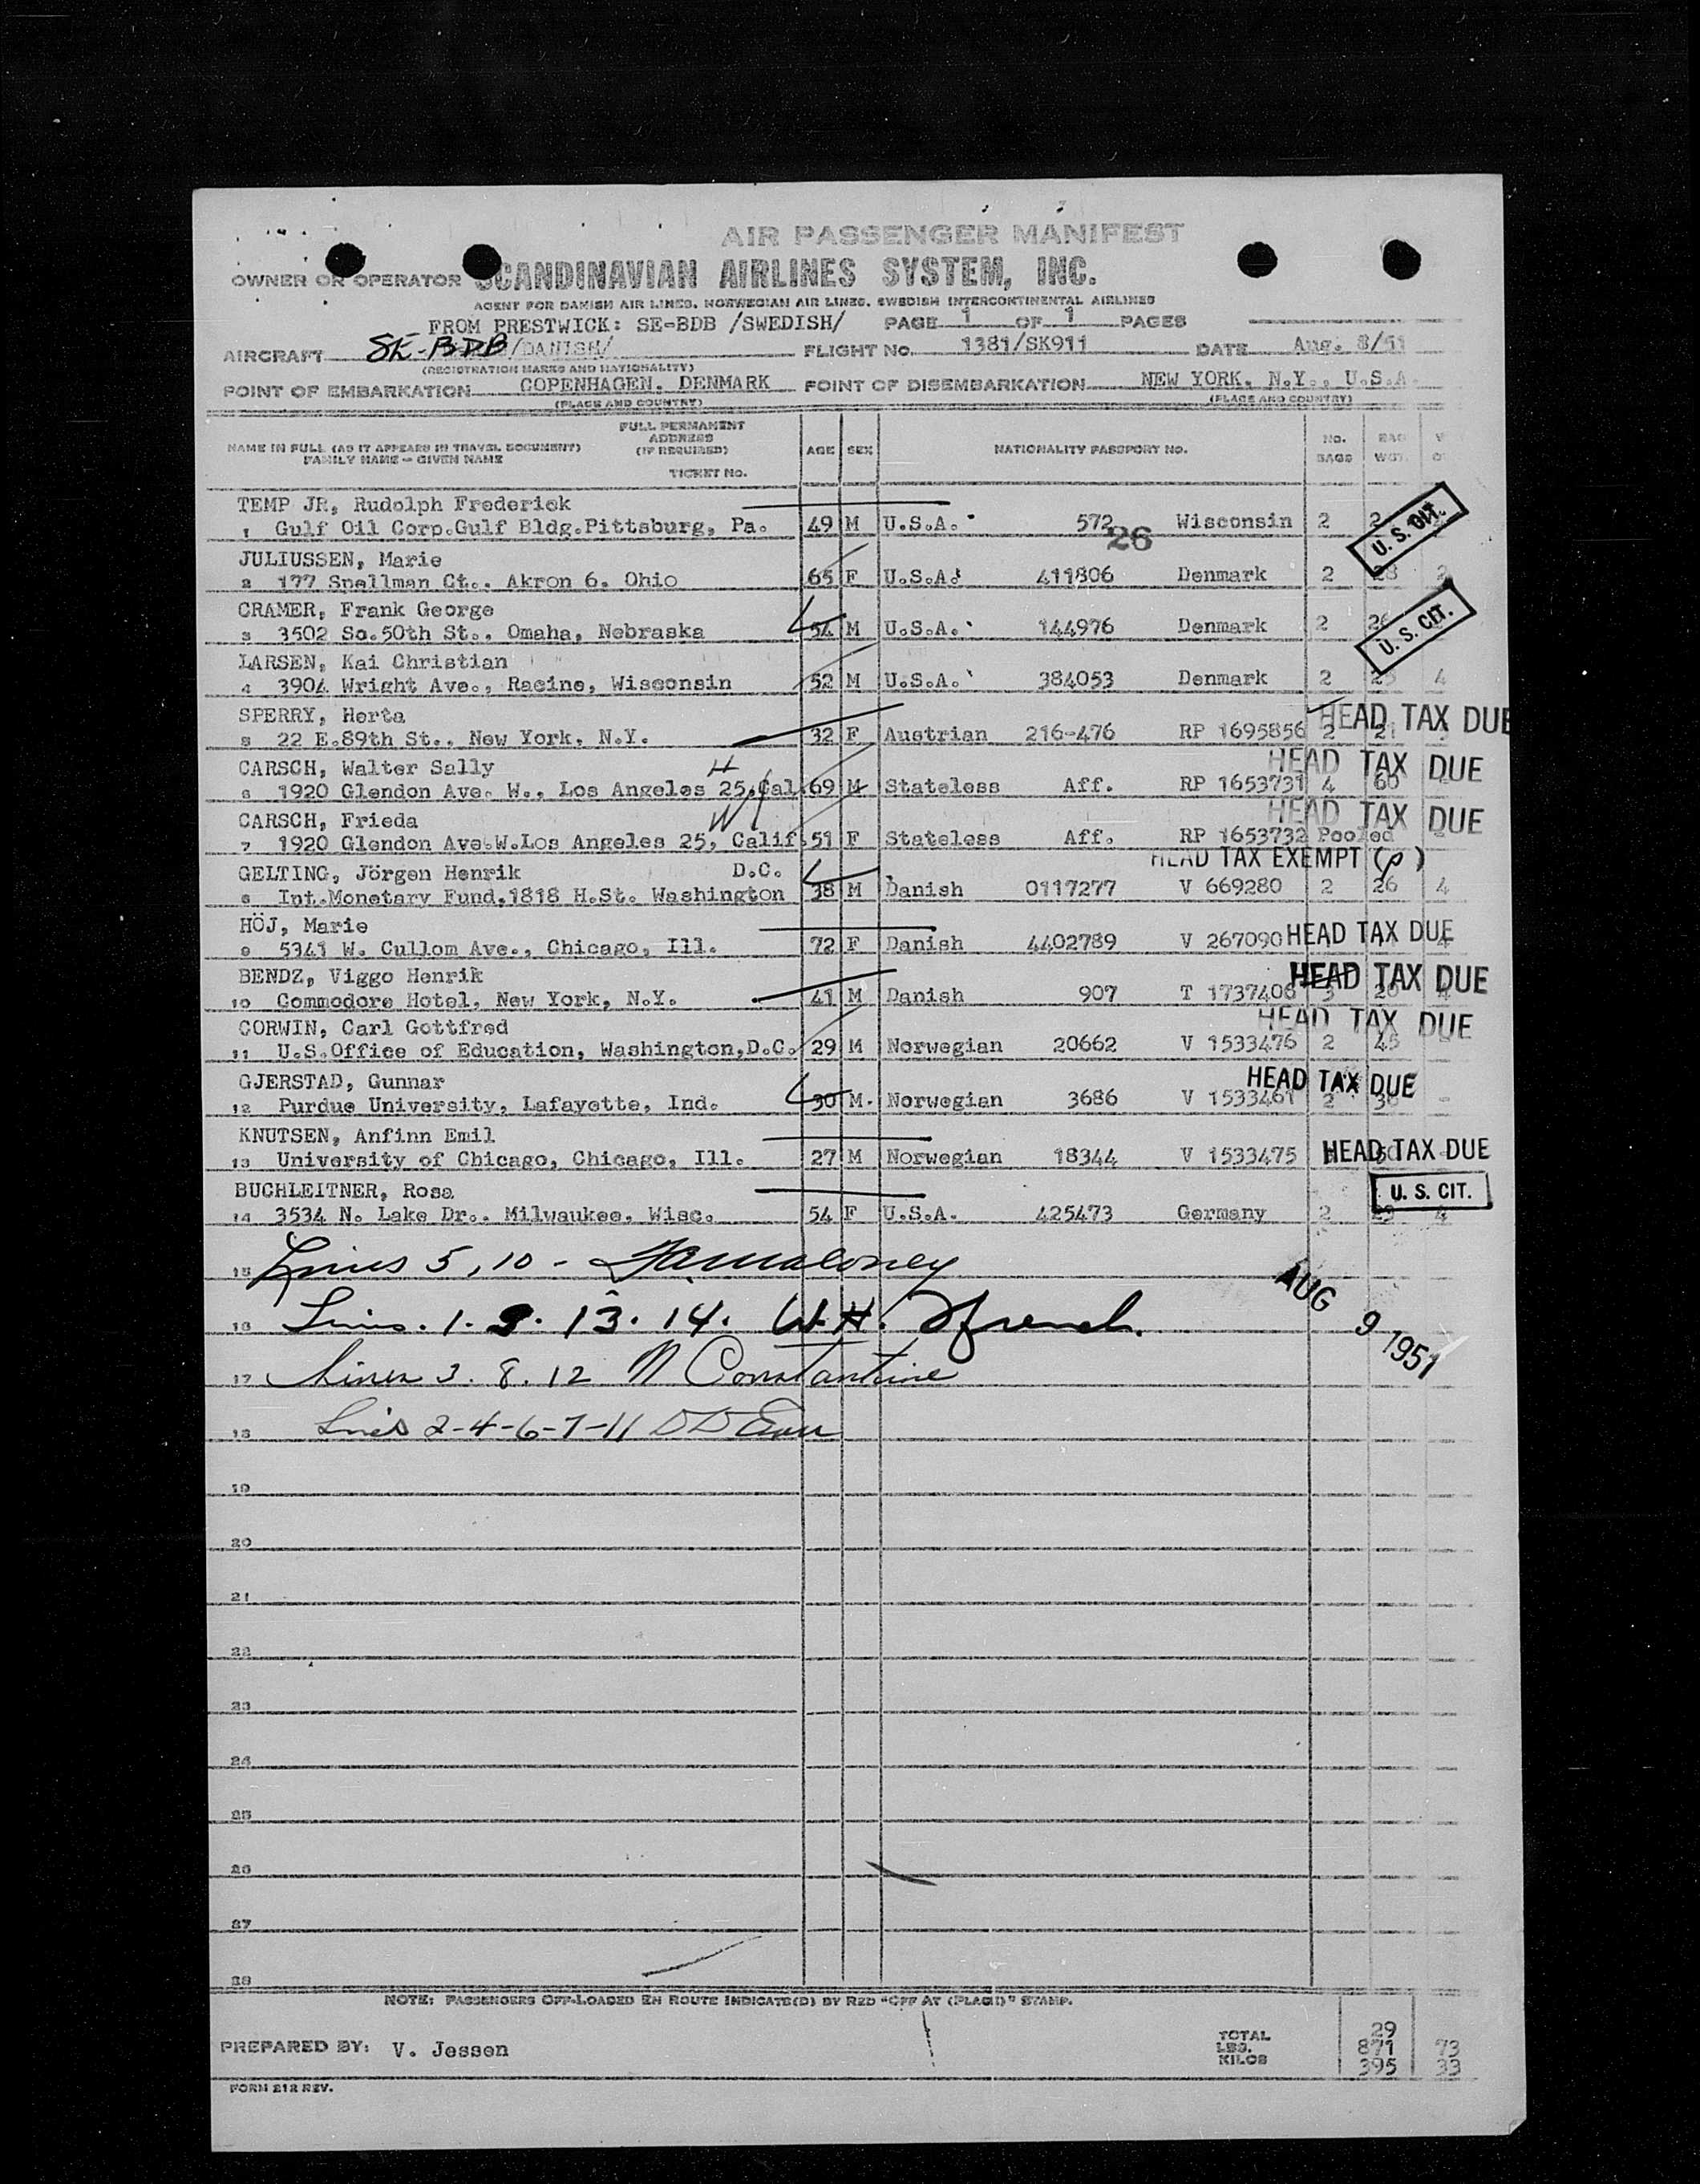 AIR PASSENGER MANIFEST
OWNER OR OPERATOR SCANDINAVIAN AIRLINES SYSTEM, INC.
AGENT FOR DANISH AIR LINES, NORWEGIAN AIR LINES, SWEDISH INTERCONTINENTAL AIRLINES
FROM PRESTWICK: SE-BDB /SWEDISH/ PAGE 1 OF 1 PAGES
AIRCRAFT SE-BDB /DANISH/ FLIGHT NO. 1381/SK911 DATE Aug. 8/51
(REGISTRATION MARKS AND NATIONALITY)
POINT OF EMBARKATION COPENHAGEN, DENMARK POINT OF DISEMBARKATION NEW YORK, N.Y., U.S.A.
(PLACE AND COUNTRY) (PLACE AND COUNTRY)
NAME IN FULL (AS IT APPEARS IN TRAVEL DOCUMENT) FAMILY NAME - GIVEN NAME FULL PERMANENT ADDRESS (IF REQUIRED) TICKET NO. AGE SEX NATIONALITY PASSPORT NO. NO. BAGS BAG WGT.
TEMP JR, Rudolph Frederick
1 Gulf Oil Corp.Gulf Bldg.Pittsburg, Pa. 49 M U.S.A. 572 Wisconsin 2 U. S. CIT.
26
JULIUSSEN, Marie
2 177 Spellman Ct., Akron 6, Ohio 65 F U.S.A. 411806 Denmark 2
CRAMER, Frank George
3 3502 So.50th St., Omaha, Nebraska 54 M U.S.A. 144976 Denmark 2 U. S. CIT.
LARSEN, Kai Christian
4 3904 Wright Ave., Racine, Wisconsin 52 M U.S.A. 384053 Denmark 2 4
SPERRY, Herta HEAD TAX DUE
5 22 E.89th St., New York, N.Y. 32 F Austrian 216-476 RP 1695856 2 21
CARSCH, Walter Sally HEAD TAX DUE
6 1920 Glendon Ave. W., Los Angeles 25,Cal 69 M Stateless Aff. RP 1653731 4 60
CARSCH, Frieda HEAD TAX DUE
7 1920 Glendon Ave.W.Los Angeles 25, Calif 51 F Stateless Aff. RP 1653732 Pooled
GELTING, Jörgen Henrik D.C. HEAD TAX EXEMPT (P)
8 Int.Monetary Fund,1818 H.St. Washington 38 M Danish 0117277 V 669280 2 26 4
HÖJ, Marie
9 5341 W. Cullom Ave., Chicago, Ill. 72 F Danish 4402789 V 267090 HEAD TAX DUE
BENDZ, Viggo Henrik HEAD TAX DUE
10 Commodore Hotel, New York, N.Y. 41 M Danish 907 T 1737406
CORWIN, Carl Gottfred HEAD TAX DUE
11 U.S.Office of Education, Washington,D.C. 29 M Norwegian 20662 V 1533476 2 45
GJERSTAD, Gunnar HEAD TAX DUE
12 Purdue University, Lafayette, Ind. 30 M. Norwegian 3686 V 1533461 2 -
KNUTSEN, Anfinn Emil
13 University of Chicago, Chicago, Ill. 27 M Norwegian 18344 V 1533475 HEAD TAX DUE
BUCHLEITNER, Rosa U. S. CIT.
14 3534 N. Lake Dr., Milwaukee, Wisc. 54 F U.S.A. 425473 Germany 2 4
15 Lines 5, 10 - Maloney
AUG 9 1951
16 Lines. 1. 9. 13. 14. W.H. French.
17 Lines 3. 8. 12 N Constantine
18 Lines 2-4-6-7-11
19
20
21
22
23
24
25
26
27
28
NOTE: PASSENGERS OFF-LOADED EN ROUTE INDICATE(D) BY RED "OFF AT (PLACE)" STAMP.
PREPARED BY: V. Jessen
TOTAL 29
LBS. 871 73
KILOS 395 33
FORM 212 REV.